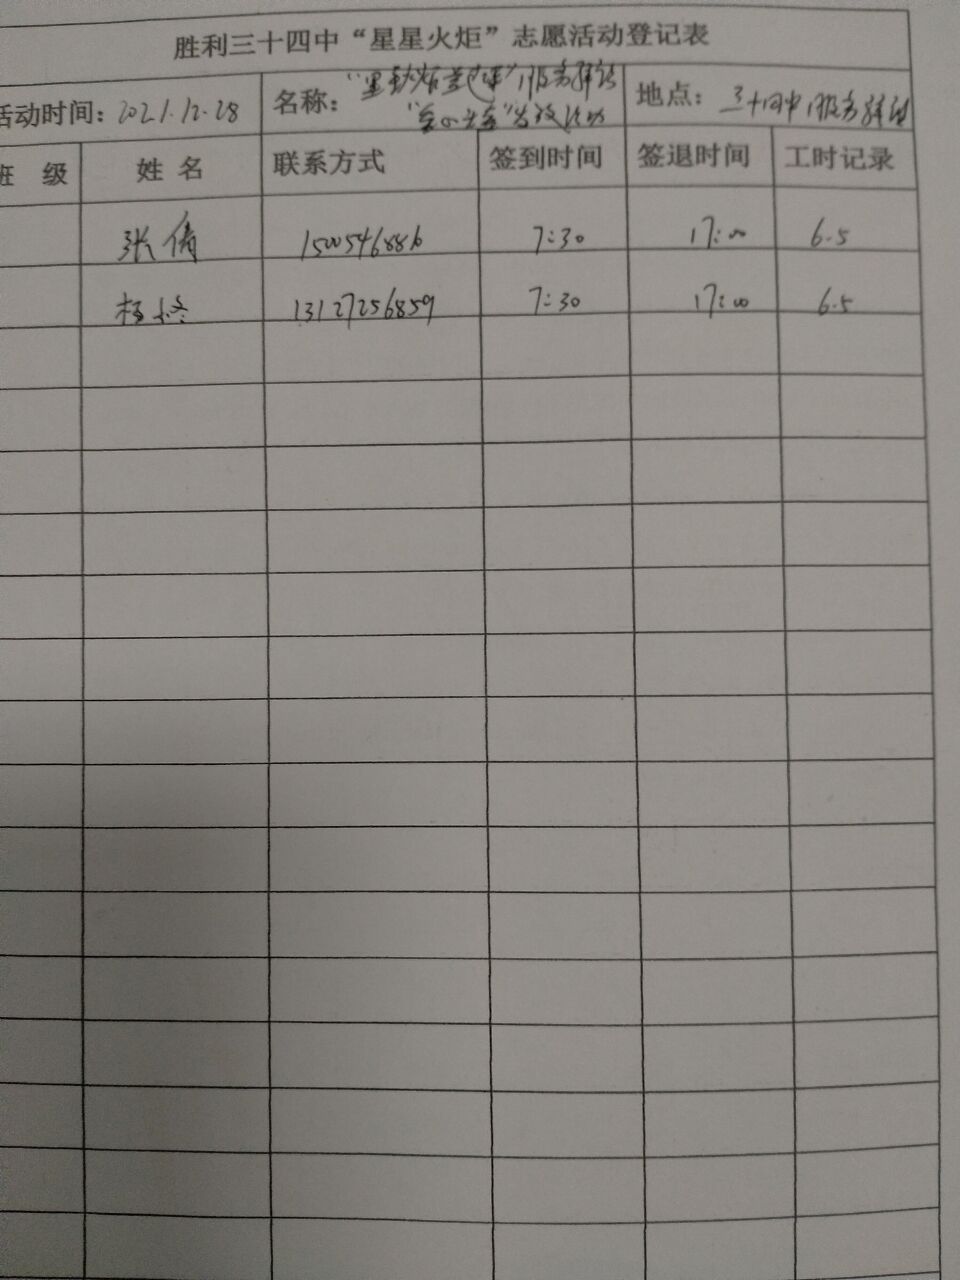 胜利三十四中“星星火炬”志愿活动登记表
活动时间：2021.12.28 名称： 服务驿站 地点：三十四中服务驿站
发放活动
班 级 姓 名 联系方式 签到时间 签退时间 工时记录
张倩 1500546886 7:30 17:00 6.5
杨 13127256859 7:30 17:00 6.5